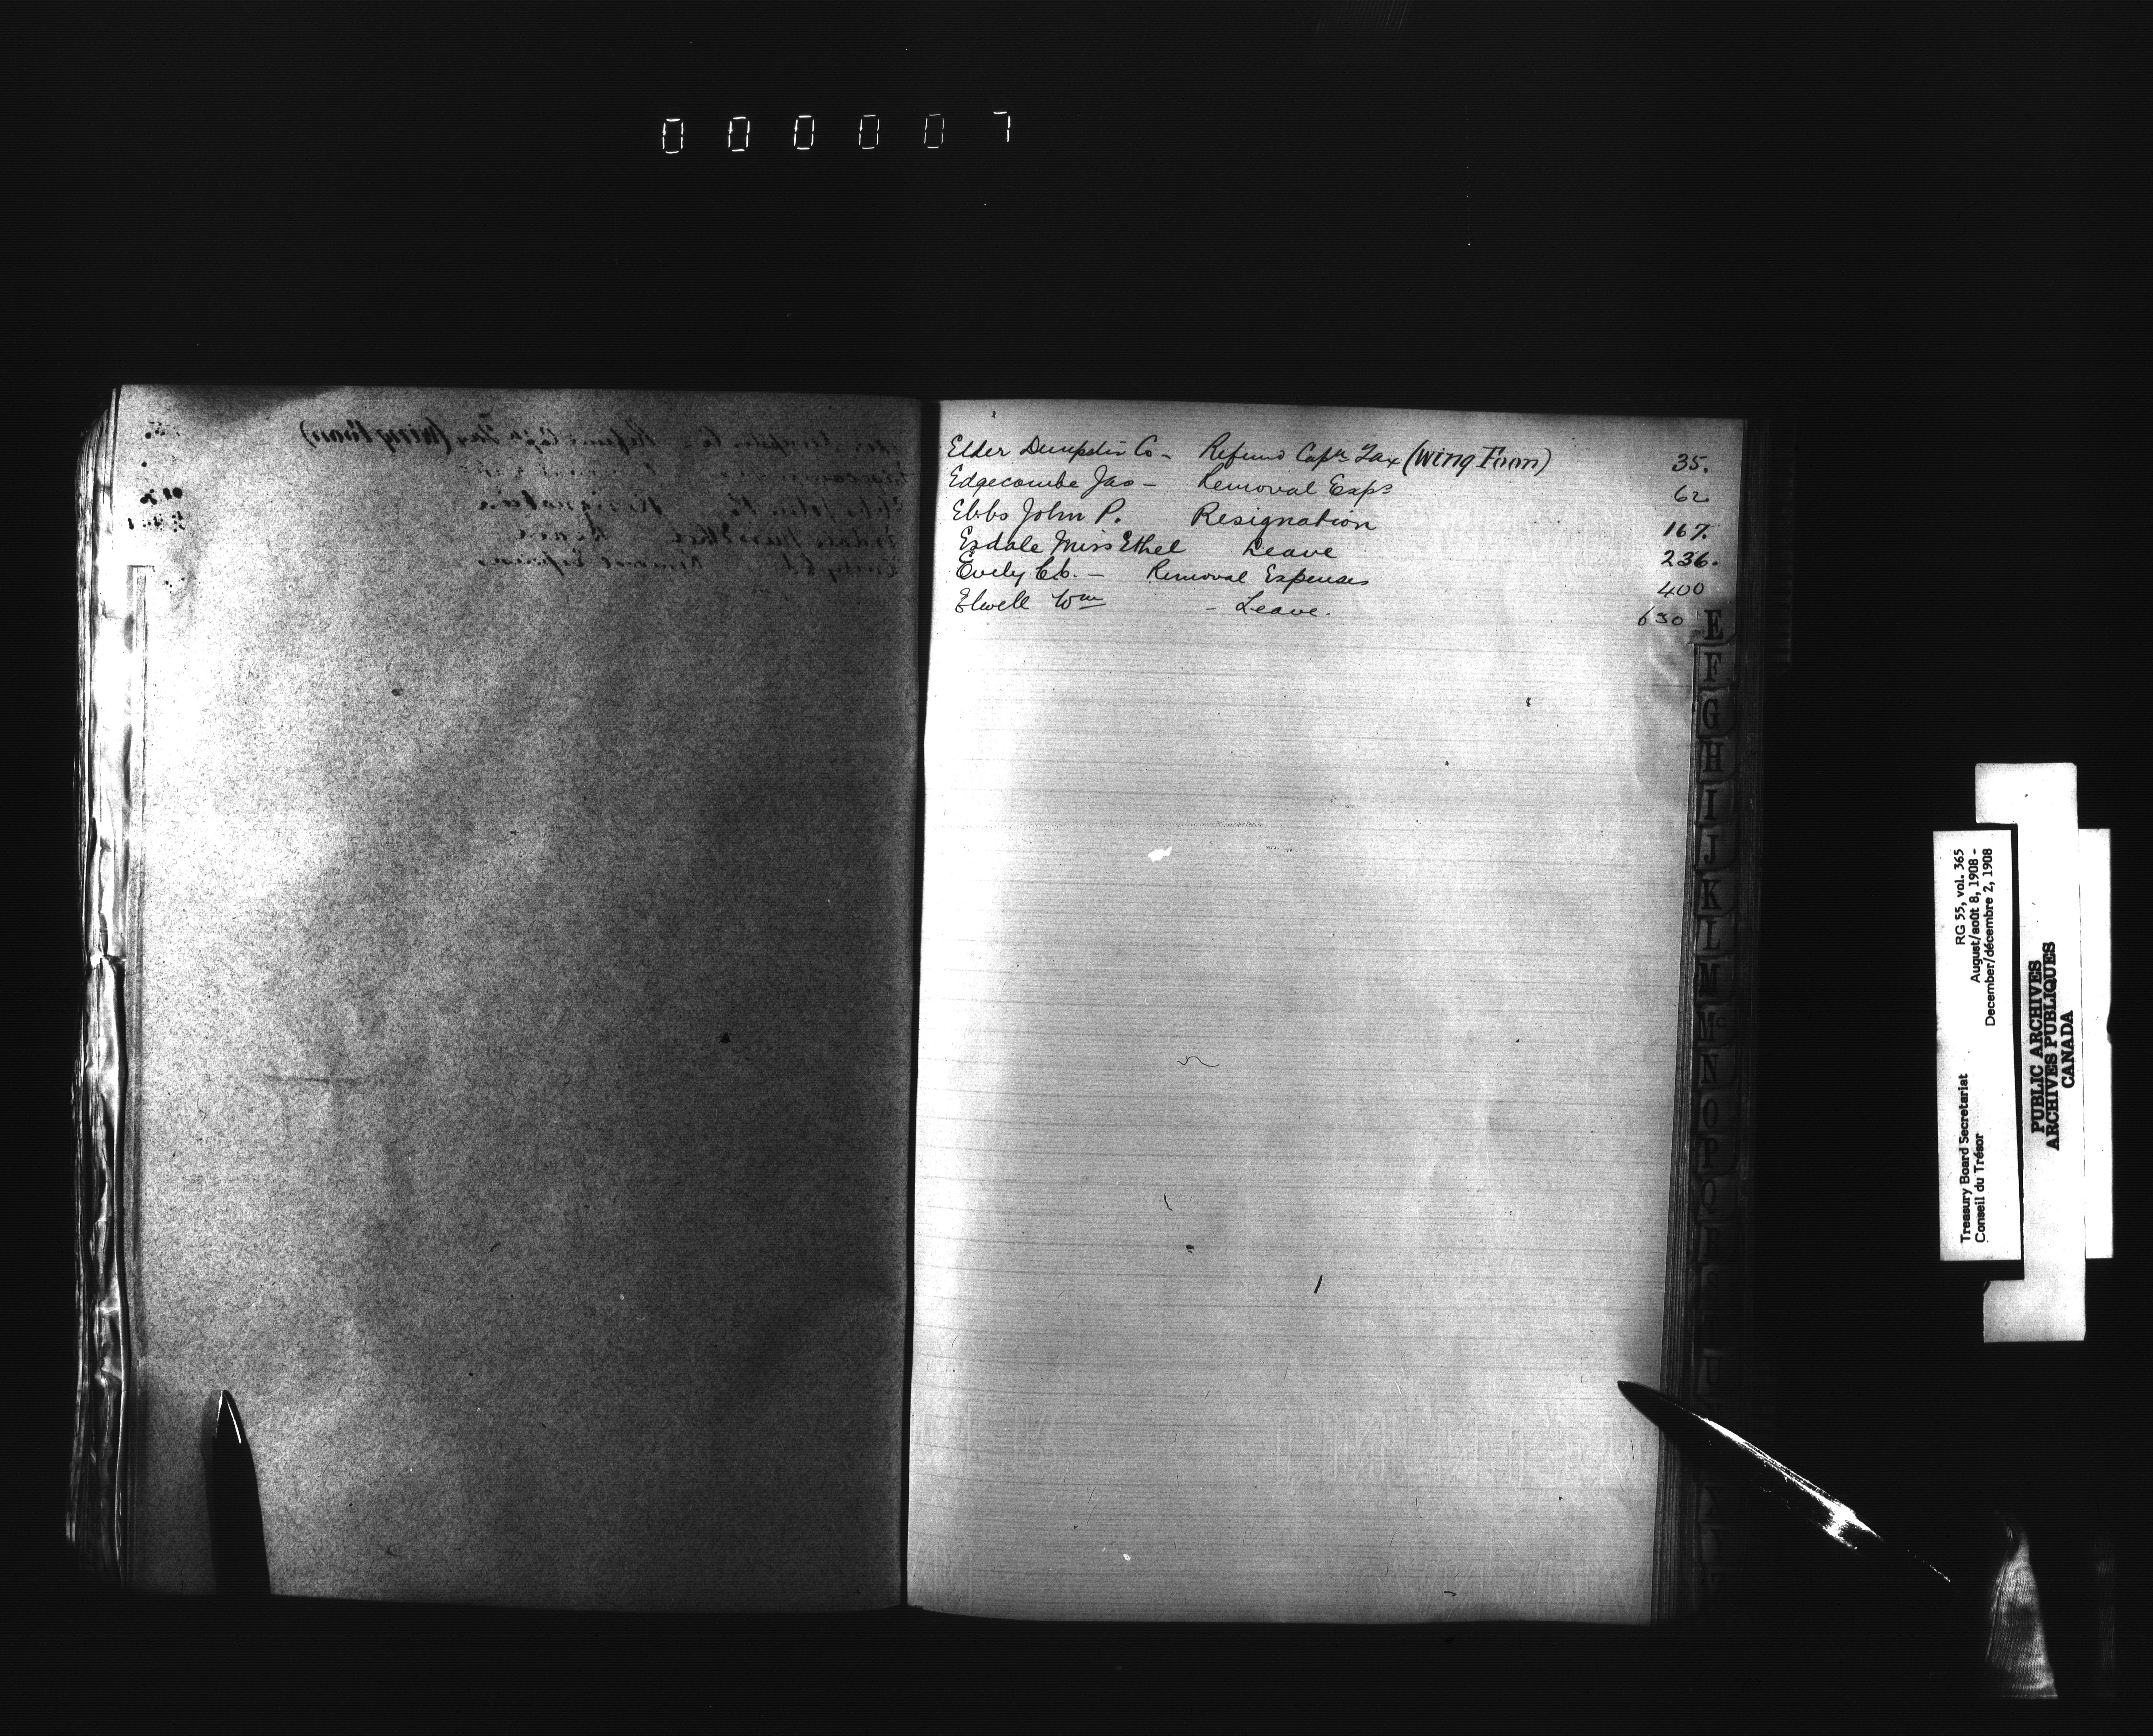 000007
Elder Dempster Co - Refund Capn Tax (Wing Foon) 35.
Edgecombe Jas - Removal Exps 62
Ebbs John P. Resignation 167.
Esdale Miss Ethel Leave 236.
Evely - Removal Expenses 400
Elwell Wm - Leave. 630
E
F
G
H
I
J
K
L
M
Mc
N
O
P
Q
R
T
Treasury Board Secretariat RG 55, vol. 365
Conseil du Trésor August/août 8, 1908 -
December/décembre 2, 1908
PUBLIC ARCHIVES
ARCHIVES PUBLIQUES
CANADA